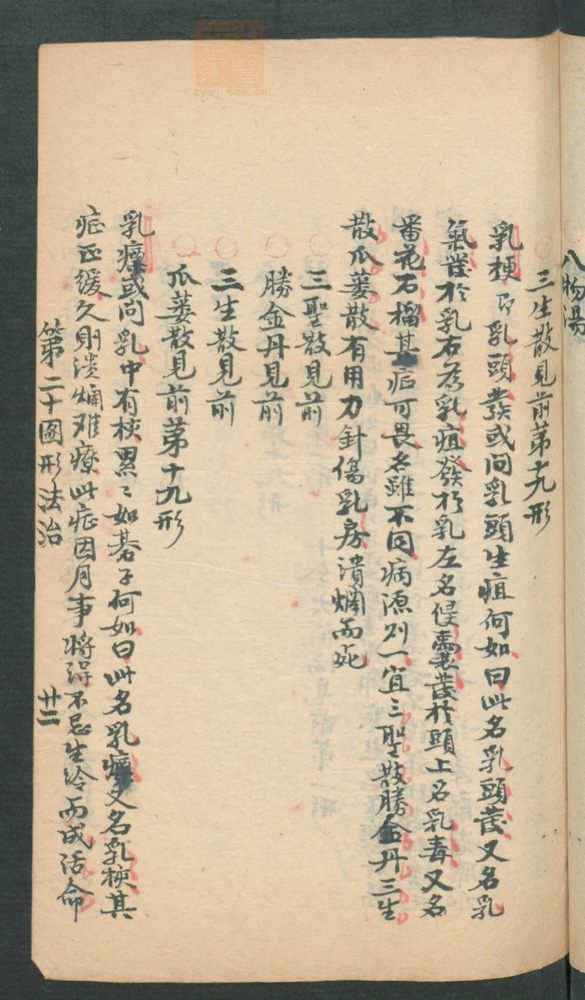 八物湯
三生散見前第十九形
乳梗即乳頭發或问乳頭生疽何如曰此名乳頭發又名乳
氣發於乳右為乳疽發於乳左名侵囊發於頭上名乳毒又名
番花石榴其症可畏名雖不同病源列一宜三聖散勝金丹三生
散瓜蒌散有用力針傷乳房潰爛而死
三聖散見前
勝金丹見前
三生散見前
瓜蒌散見前第十九形
乳癖或问乳中有核累〻如碁子何如曰此名乳癖又名乳核其
症正緩久則潰爛难療此症因月事將得不忌生冷而成活命
第二十圖形法治
廿二